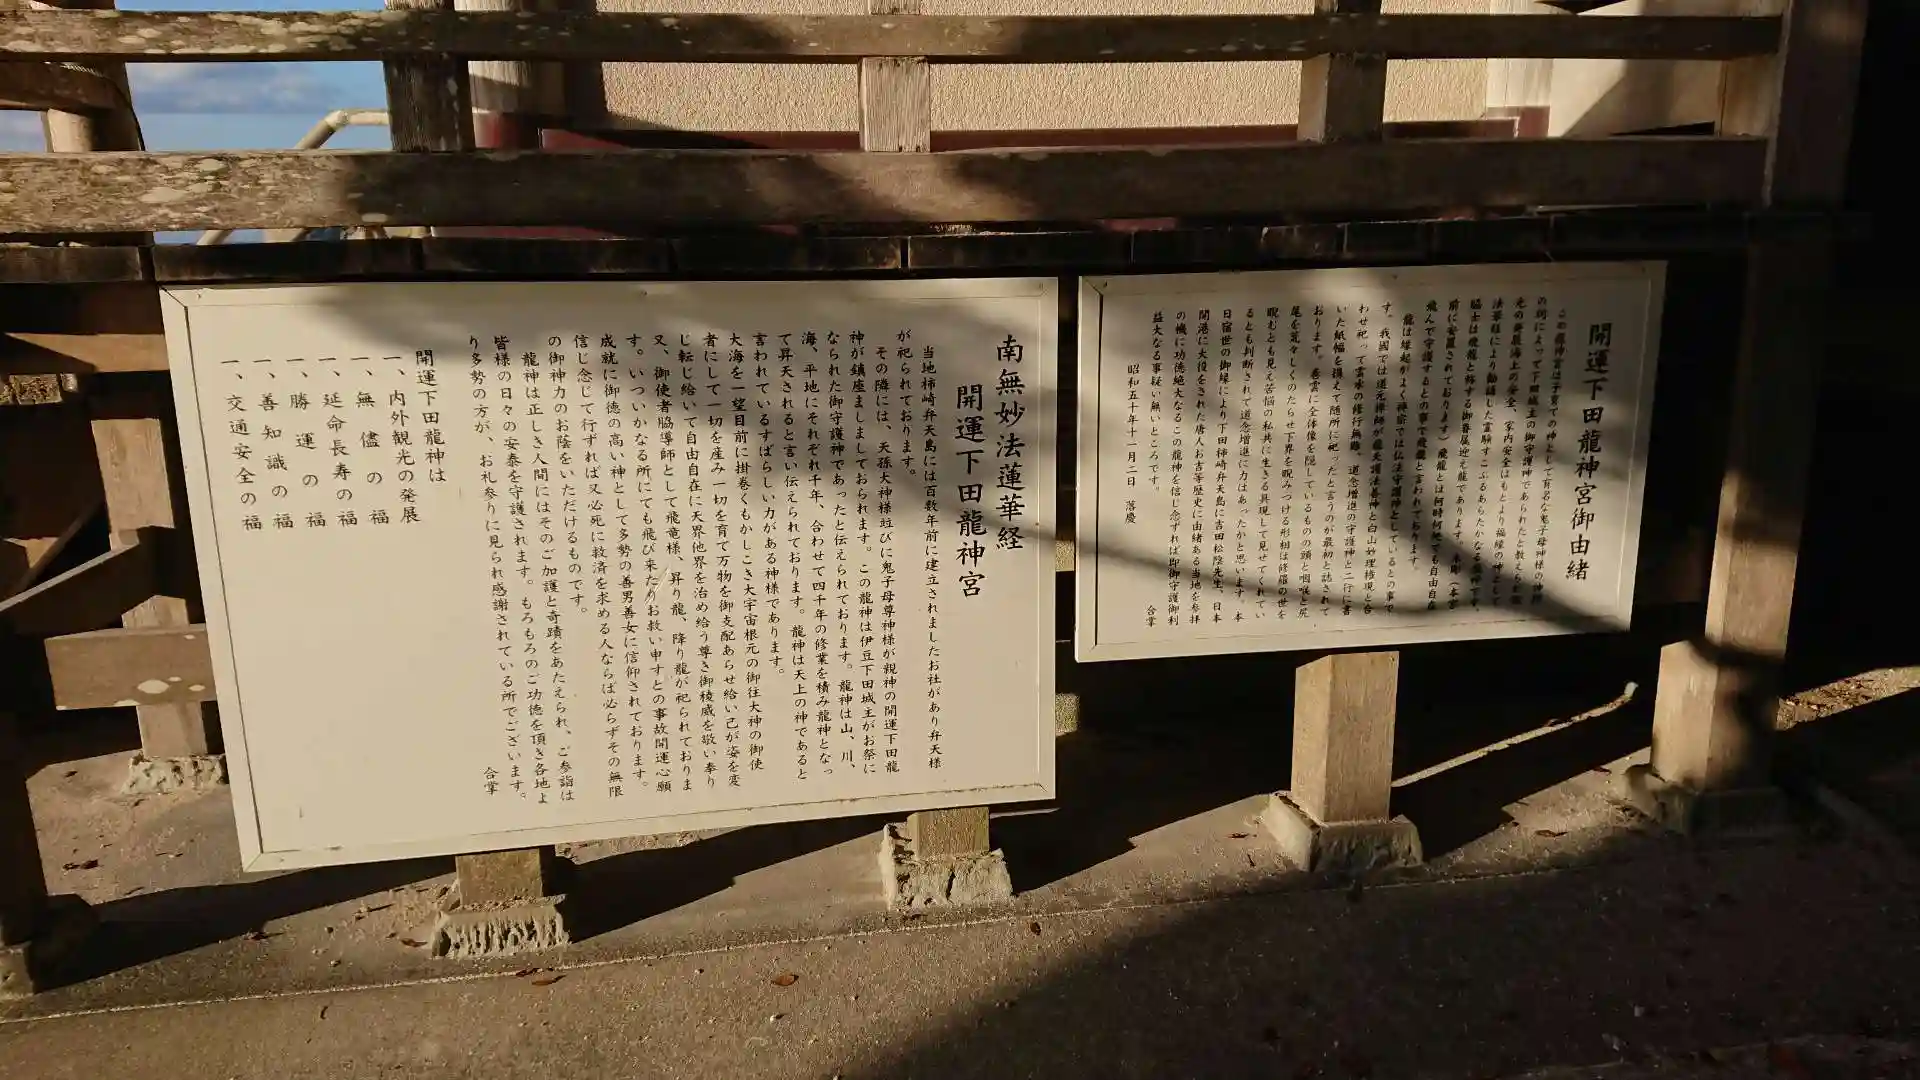 開運下田龍神宮御由緒
この龍神宮は子育ての神として有名な鬼子母神様の神
の祠によって下田城主の御守護神であられたと教えられ
法華経により勧請した霊験すこぶるあらたかなる龍神です。
脇士は飛龍と称する御眷属迎え龍であります。
前に安置されております)飛龍とは何時何処でも自由自在
飛んで守護するとの事で飛龍と言われております。
龍は縁起がよく神宮では仏法守護神としているとの事で
す。我國では道元禅師が龍天護法善神と白山妙理権現と合
わせ祀って雲水の修行無難、道念増進の守護神と二行に書
いた紙幅を携えて随所に祀ったと言うのが最初と誌されて
おります。善雲に全体像を隠しているものの頭と咽喉と尻
尾を荒々しくのたらせ下界を睨みつける形相は修羅の世を
睨むとも見え苦悩の私共に生きる具現して見せてくれてい
るとも判断されて道念増進に力はあったかと思います。本
日宿世の御縁により下田柿崎弁天島に吉田松陰先生、日本
開港に大役をされた唐人お吉等歴史に由緒ある当地を参拝
の機に功徳絶大なるこの龍神を信じ念ずれば即御守護御利
益大なる事疑い無いところです。
合掌
昭和五十年十一月二日 落慶
南無妙法蓮華経
開運下田龍神宮
当地柿崎弁天島には百数年前に建立されましたお社があり弁天様
が祀られております。
その隣には、天孫大神様竝びに鬼子母尊神様が親神の開運下田龍
神が鎮座ましましておられます。この龍神は伊豆下田城主がお祭に
なられた御守護神であったと伝えられております。龍神は山、川、
海、平地にそれぞれ千年、合わせて四千年の修業を積み龍神となっ
て昇天されると言い伝えられております。龍神は天上の神であると
言われているすばらしい力がある神様であります。
大海を一望目前に掛巻くもかしこき大宇宙根元の御往大神の御使
者にして一切を産み一切を育て万物を御支配あらせ給い己が姿を変
じ転じ給いて自由自在に天界他界を治め給う尊き御稜威を敬い奉り
又、御使者脇導師として飛竜様、昇り龍、降り龍が祀られておりま
す。いついかなる所にても飛び来たりお救い申すとの事故開運心願
成就に御徳の高い神として多勢の善男善女に信仰されております。
信じ念じて行ずれば又必死に救済を求める人ならば必らずその無限
の御神力のお蔭をいただけるものです。
龍神は正しき人間にはそのご加護と奇蹟をあたえられ、ご参詣は
皆様の日々の安泰を守護されます。もろもろのご功徳を頂き各地よ
り多勢の方が、お礼参りに見られ感謝されている所でございます。
合掌
開運下田龍神は
一、内外観光の発展
一、無儘の福
一、延命長寿の福
一、勝運の福
一、善知識の福
一、交通安全の福